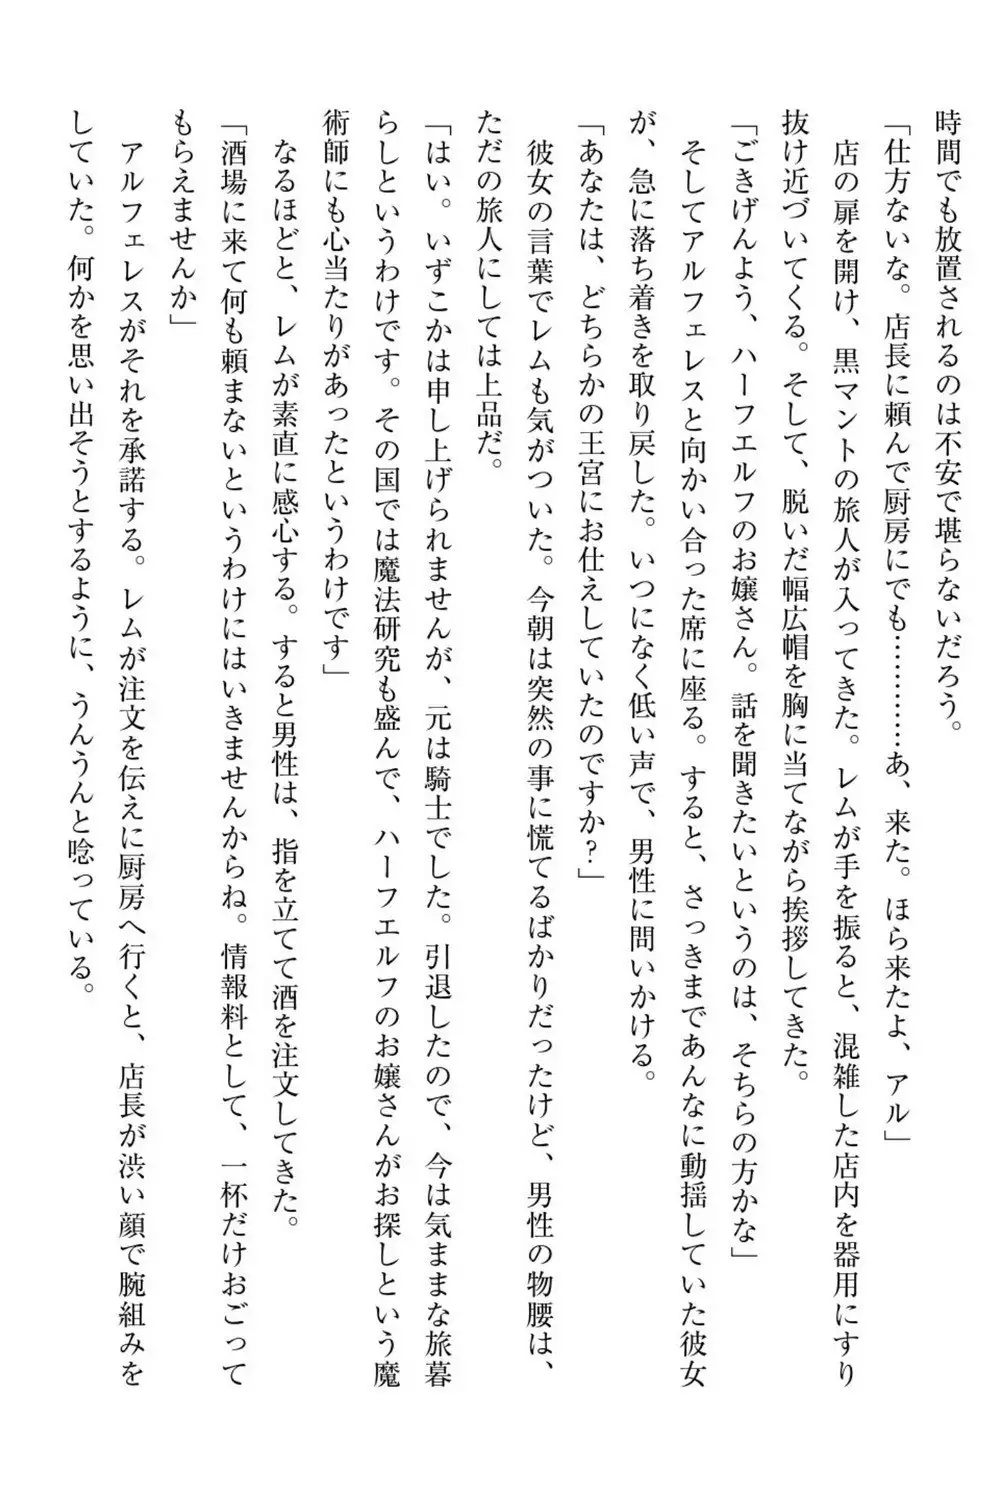 時間でも放置されるのは不安で堪らないだろう。
「仕方ないな。店長に頼んで厨房にでも…………あ、来た。ほら来たよ、アル」
店の扉を開け、黒マントの旅人が入ってきた。レムが手を振ると、混雑した店内を器用にすり
抜け近づいてくる。そして、脱いだ幅広帽を胸に当てながら挨拶してきた。
「ごきげんよう、ハーフエルフのお嬢さん。話を聞きたいというのは、そちらの方かな」
そしてアルフェレスと向かい合った席に座る。すると、さっきまであんなに動揺していた彼女
が、急に落ち着きを取り戻した。いつになく低い声で、男性に問いかける。
「あなたは、どちらかの王宮にお仕えしていたのですか？」
彼女の言葉でレムも気がついた。今朝は突然の事に慌てるばかりだったけど、男性の物腰は、
ただの旅人にしては上品だ。
「はい。いずこかは申し上げられませんが、元は騎士でした。引退したので、今は気ままな旅暮
らしというわけです。その国では魔法研究も盛んで、ハーフエルフのお嬢さんがお探しという魔
術師にも心当たりがあったというわけです」
なるほどと、レムが素直に感心する。すると男性は、指を立てて酒を注文してきた。
「酒場に来て何も頼まないというわけにはいきませんからね。情報料として、一杯だけおごって
もらえませんか」
アルフェレスがそれを承諾する。レムが注文を伝えに厨房へ行くと、店長が渋い顔で腕組みを
していた。何かを思い出そうとするように、うんうんと唸っている。